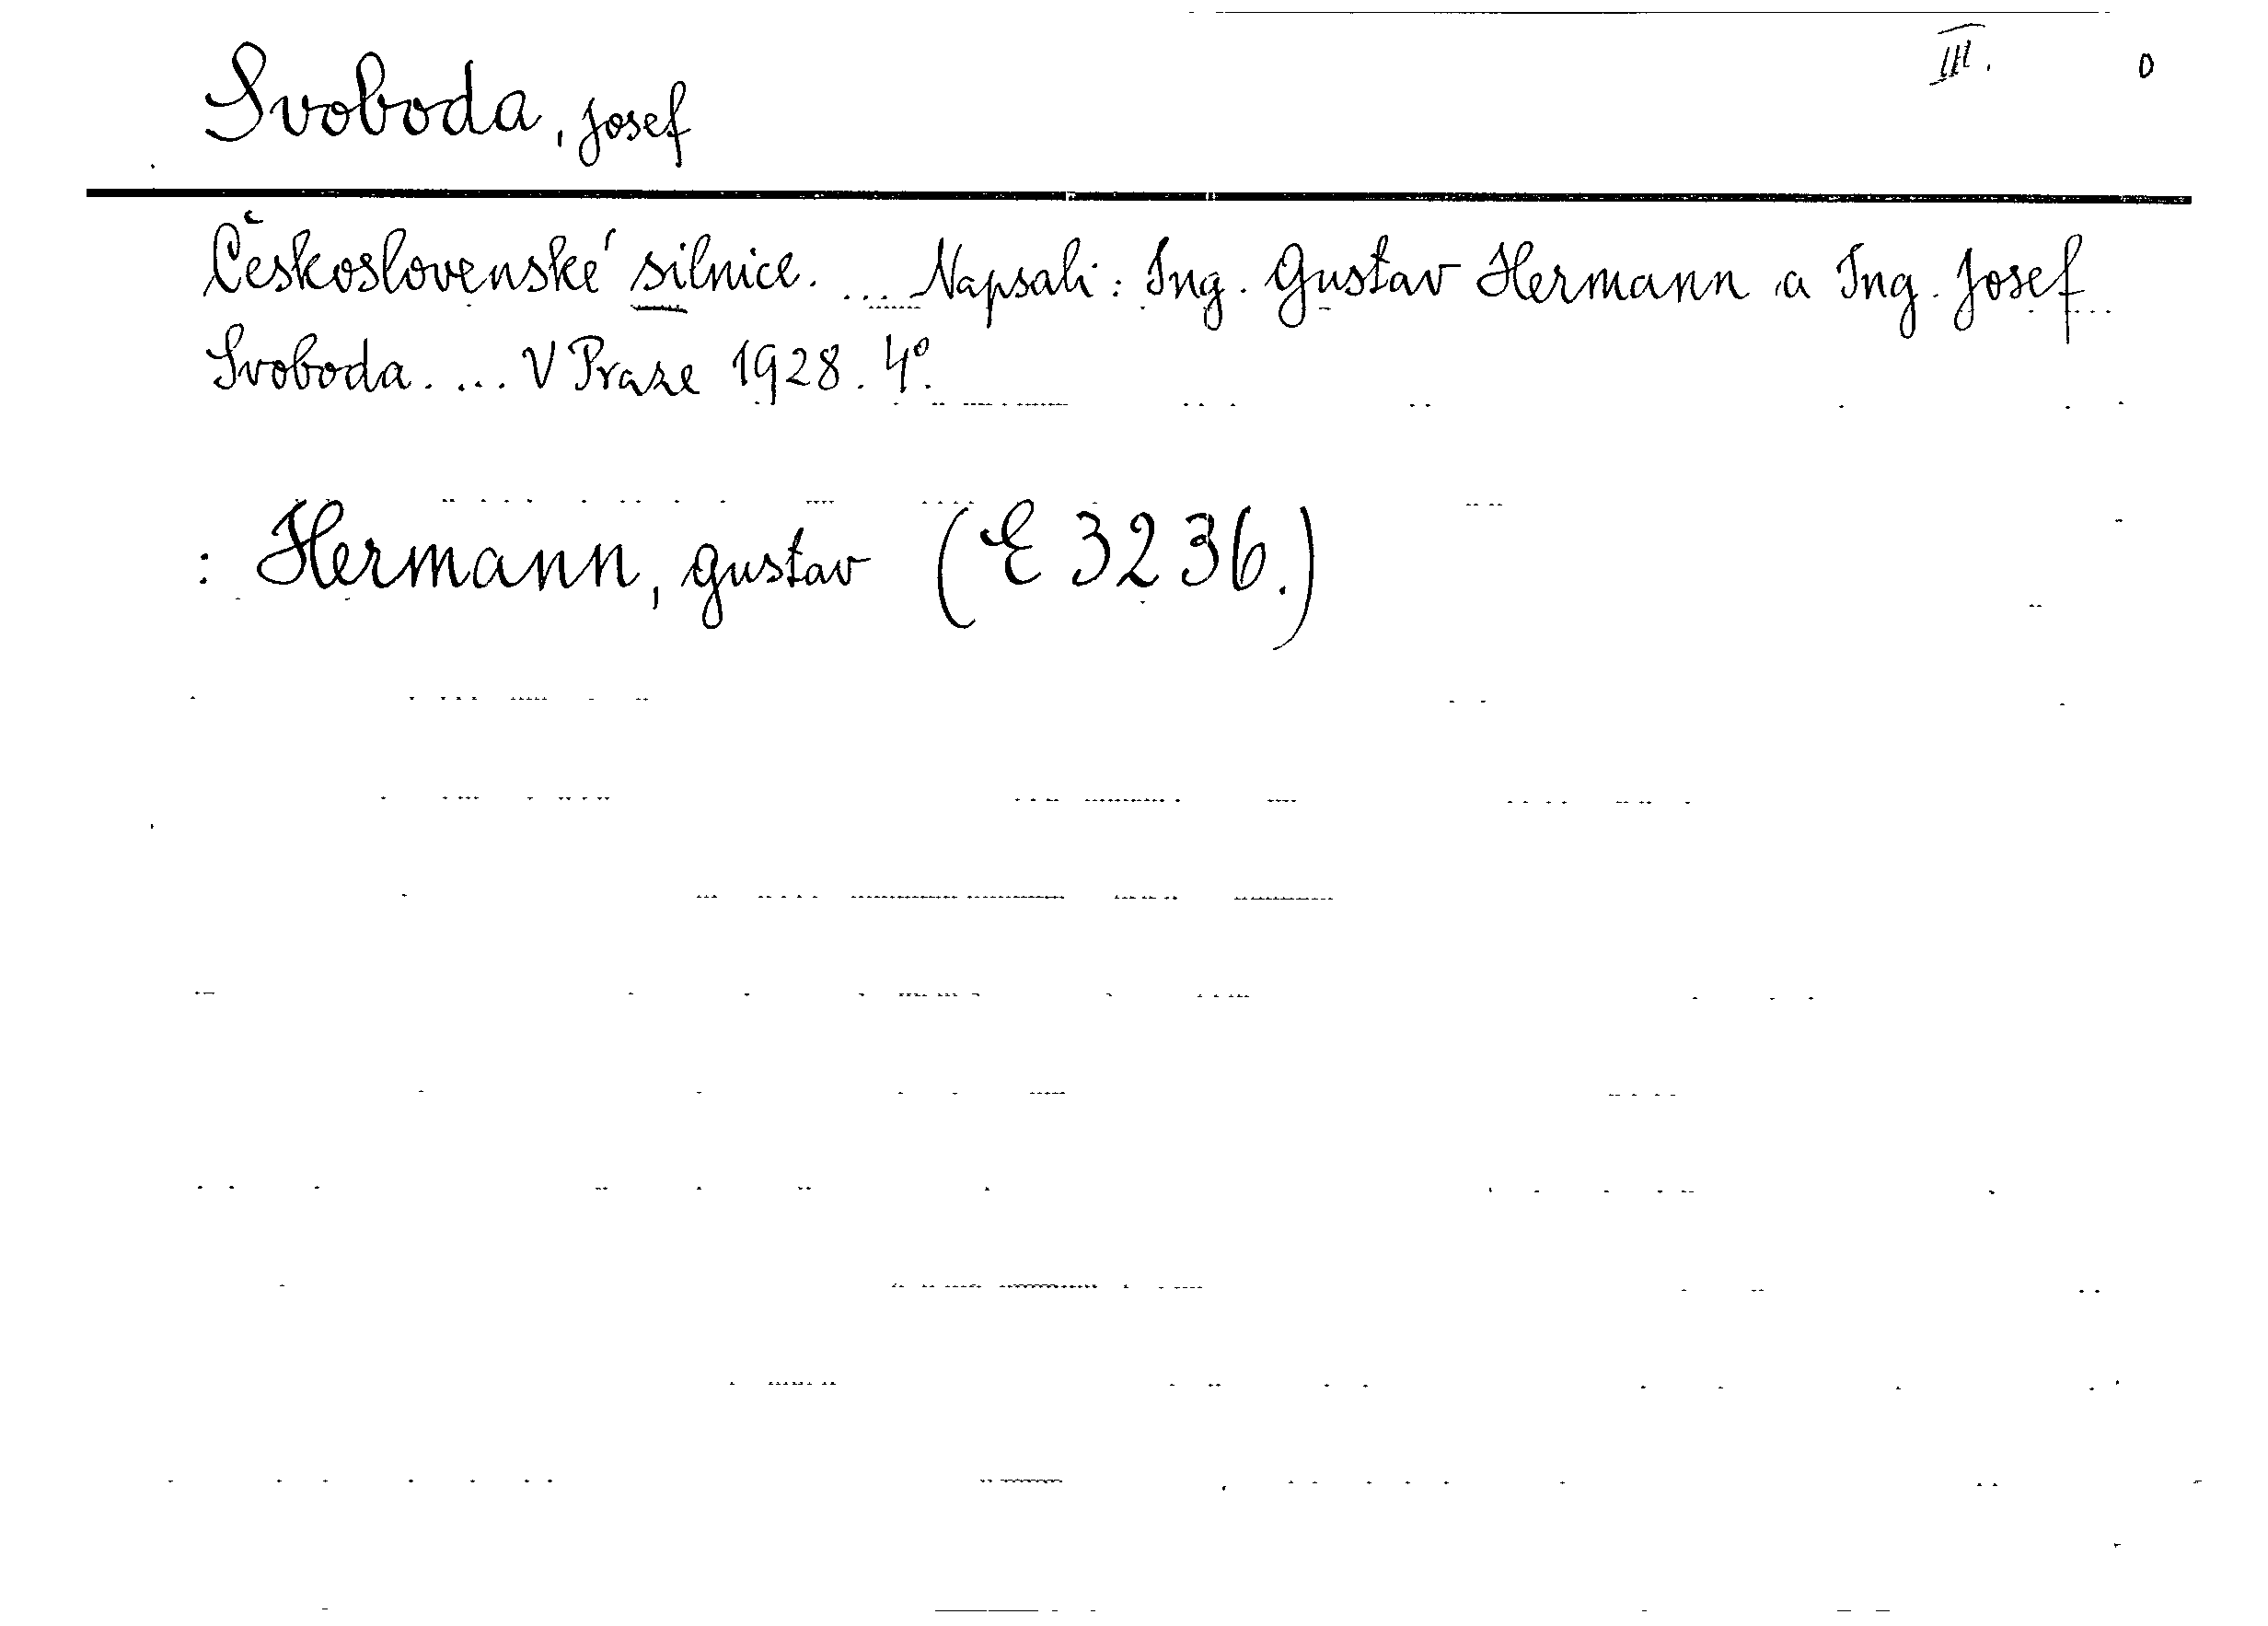 III. 0
Svoboda, Josef
Československé silnice. ... Napsali: Ing. Gustav Hermann a Ing. Josef
Svoboda. ... V Praze 1928. 4°.
: Hermann, Gustav (E 3236.)